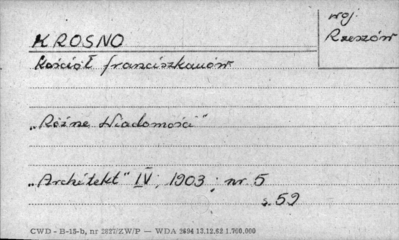 KROSNO
woj.
Rzeszów
Kościół franciszkanów
„Różne Wiadomości"
„Architekt" IV, 1903, nr. 5
s. 59
CWD - B-15-b, nr 2827/ZW/P — WDA 2694 12.12.62 1.700.000